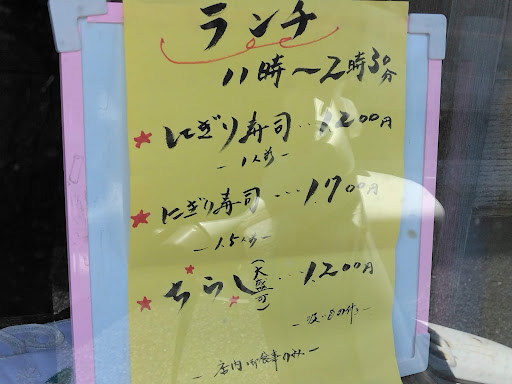 ランチ
11時〜2時30分
★にぎり寿司…1.200円
－1人前－
★にぎり寿司…1.700円
－1.5人前－
★ちらし(大盛可)…1.200円
－店内お食事のみ－